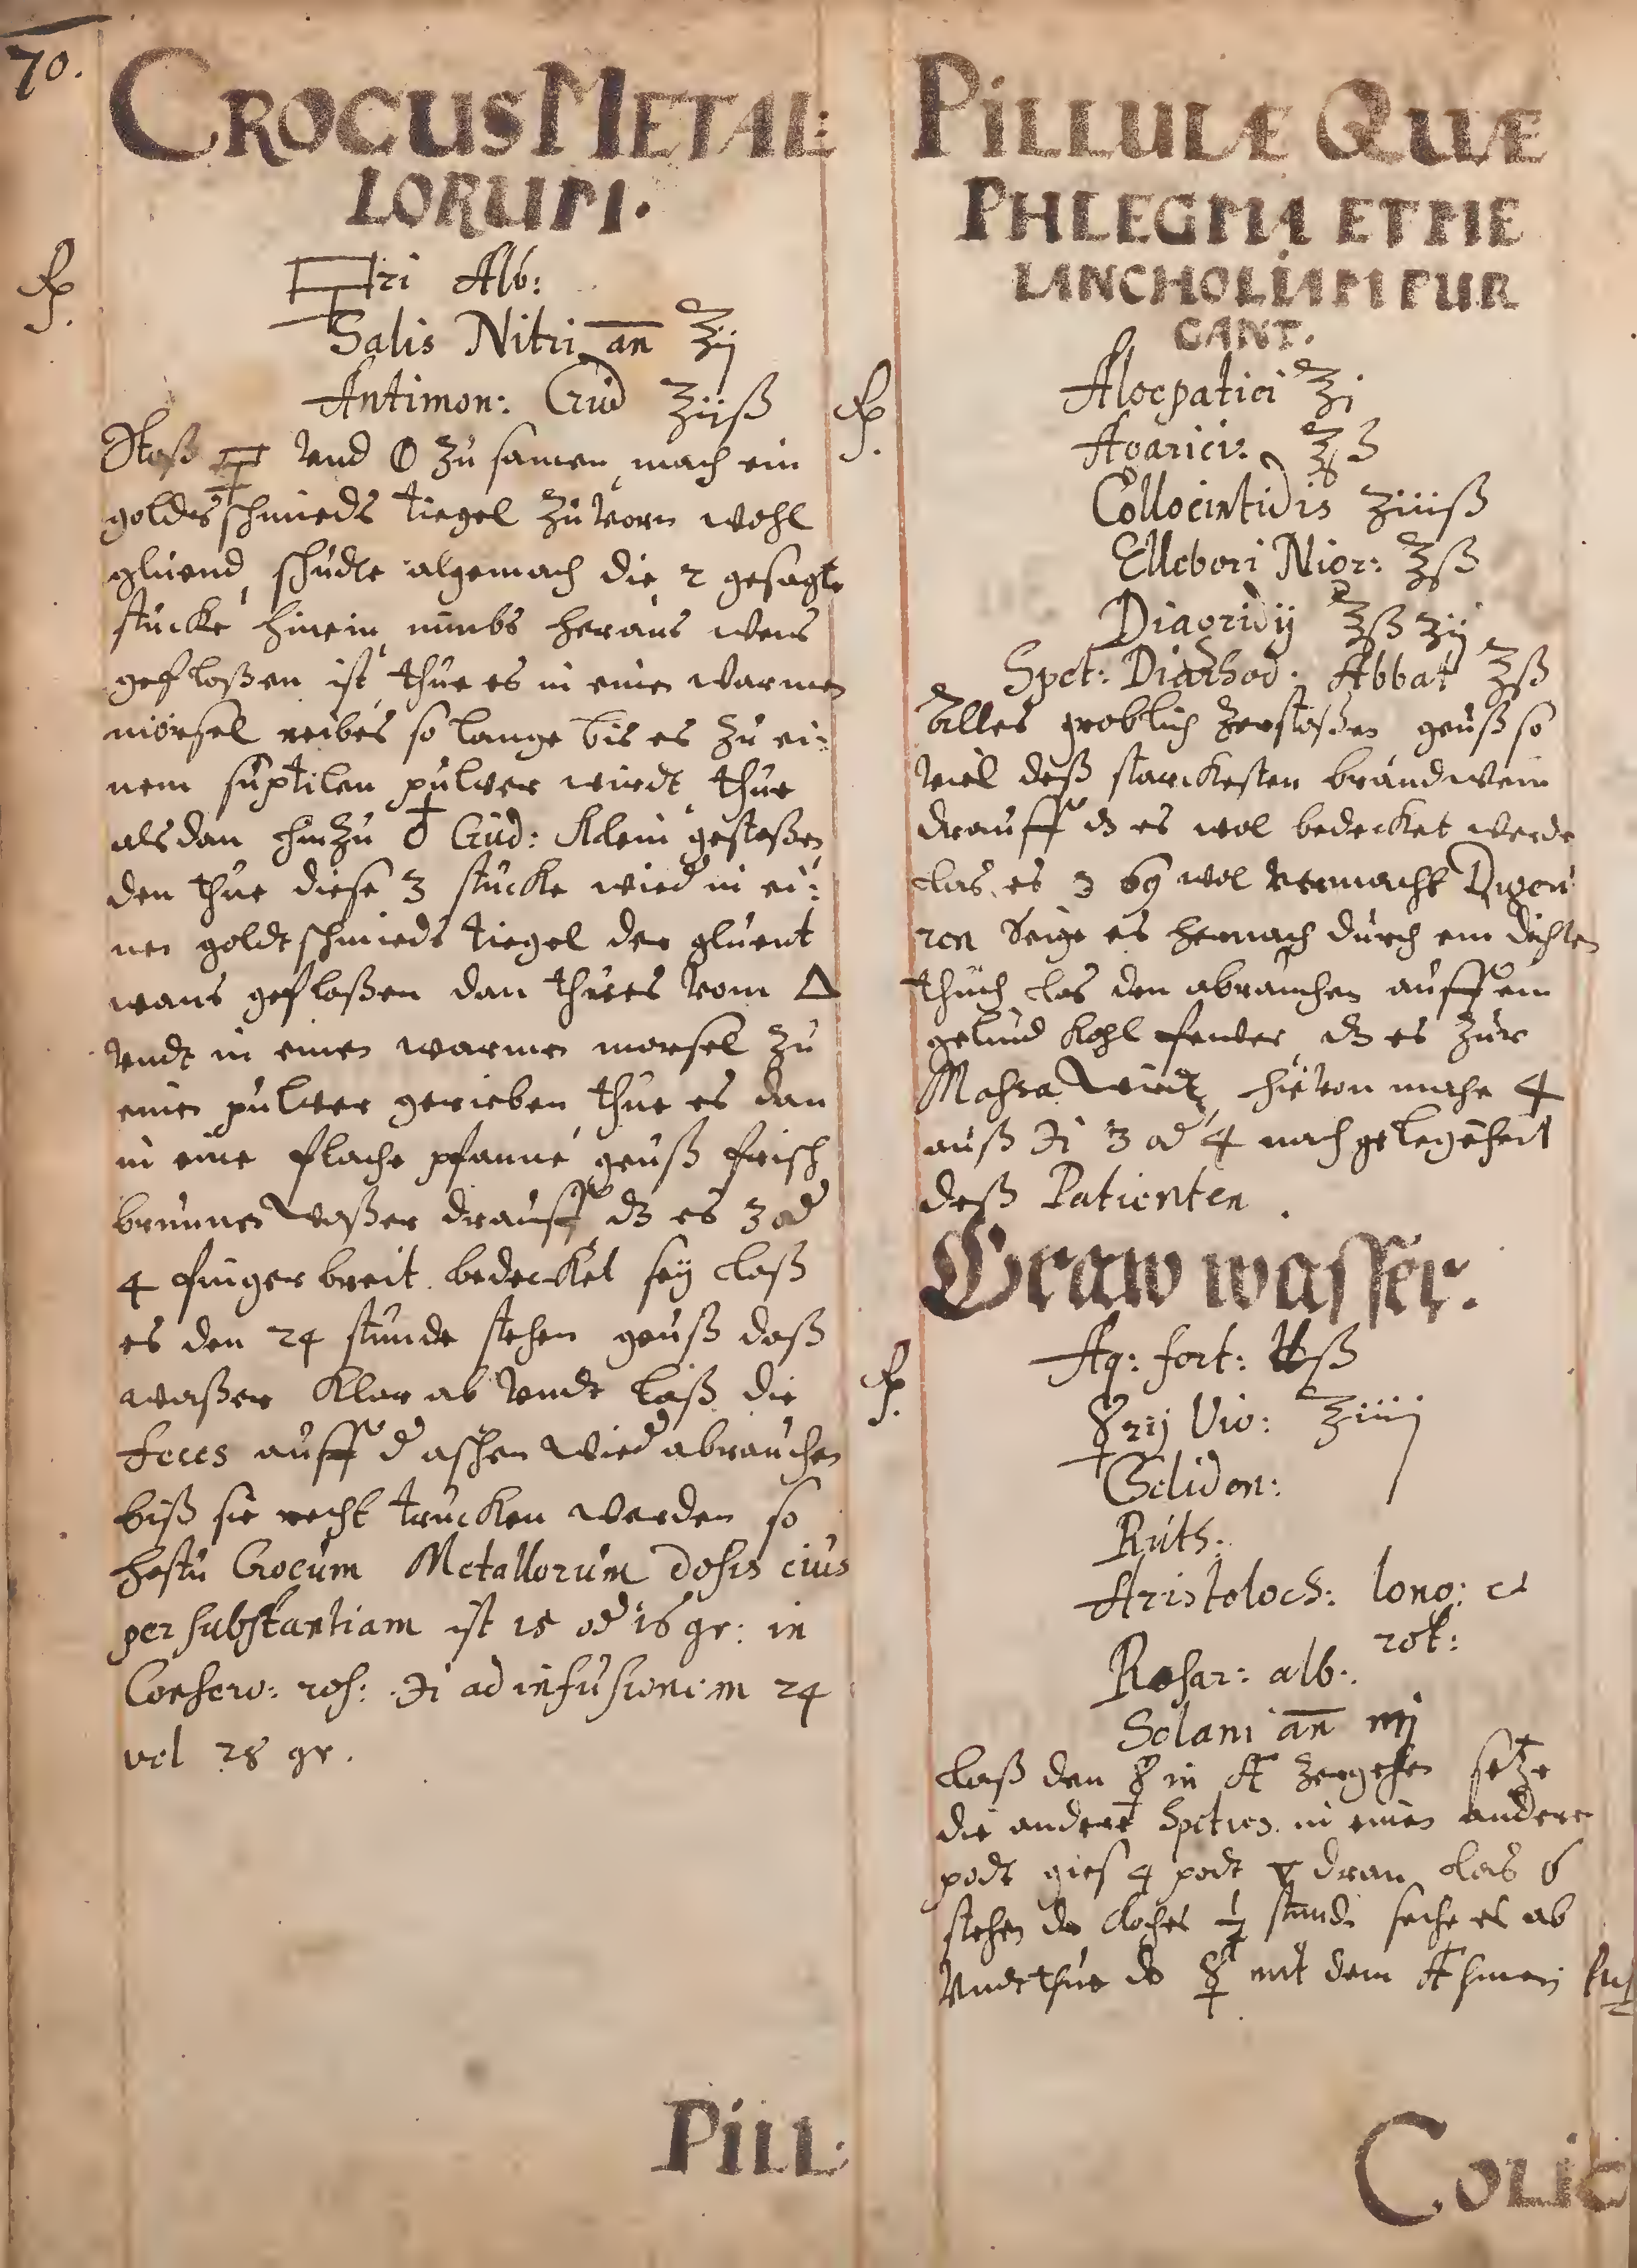 70.
CROCUS METAL:
LORUM.
℞.
🜿ri Alb:
Salis Nitri an ℥ij
Antimon: Crud ʒiiß
Stoß 🜿 vnd 🜕 zu samen mach ein
goldtschmieds tiegel zuvorn wohl
gluend, schudte algemach die 2 gesagte
stucke hinein nimbs heraus wens
gefloßen ist thue es in einen warmen
morsel reibes so lange bis es zu ei:
nem suptilen pulver wirdt thue
alsdan hinzu ♁ Crud: klein gestoßen
den thue diese 3 stucke wied in ei:
nen goldtschmieds tiegel der gluent
wans gefloßen dan thues vom △
vndt in einen warmen morsel zu
einen pulver gerieben thue es dan
in eine flache pfanne geuß frisch
brunnen waßer drauff dz es 3 od
4 finger breit bedecket sey laß
es den 24 stunde stehen geuß daß
waßer klar ab vndt laß die
feces auff d aschen wied abrauchen
biß sie recht trucken werden so
hastu Crocum Metallorum dosis eius
per substantiam ist 15 od 16 gr: in
Conserv: ros: ʒi ad infusionem 24
vel 28 gr.
PILL:
PILLULÆ QUÆ
PHLEGMA ET ME
LANCHOLIAM PUR
GANT.
℞.
Aloepatici ℥i
Agarici: ℥ß
Collocintidis ʒiiiß
Ellebori Nigr: ℥ß
Diagridij ℥ß ʒij
Spet: Diarhod: Abbat ℥ß
Alles groblich zerstoßen geuß so
viel deß starckesten brandwein
drauff dz es wol bedecket werde
las es 3 wol vermacht Digeri
ren Seige es hernach durch ein dichten
thuch las den abrauchen auff ein
gelind kohl fewer dz es zur
Maßa wirt hievon mache 4
auß ʒi 3 od 4 nach gelegenheit
deß Patienten.
Graw wasser.
℞.
Aq: fort: ℔ß
☿rij Viv: ʒiiij
Celidon:
Ruth:
Aristoloch: long: et
rot:
Rosar: alb:
Solani an mj
Laß den ☿ in zergehen setze
die andere Species in einen andere
podt gies 4 podt ▽ dran las 6
stehen koches ½ stund seihe es ab
vndt thue ☿ mit dem
COLIC